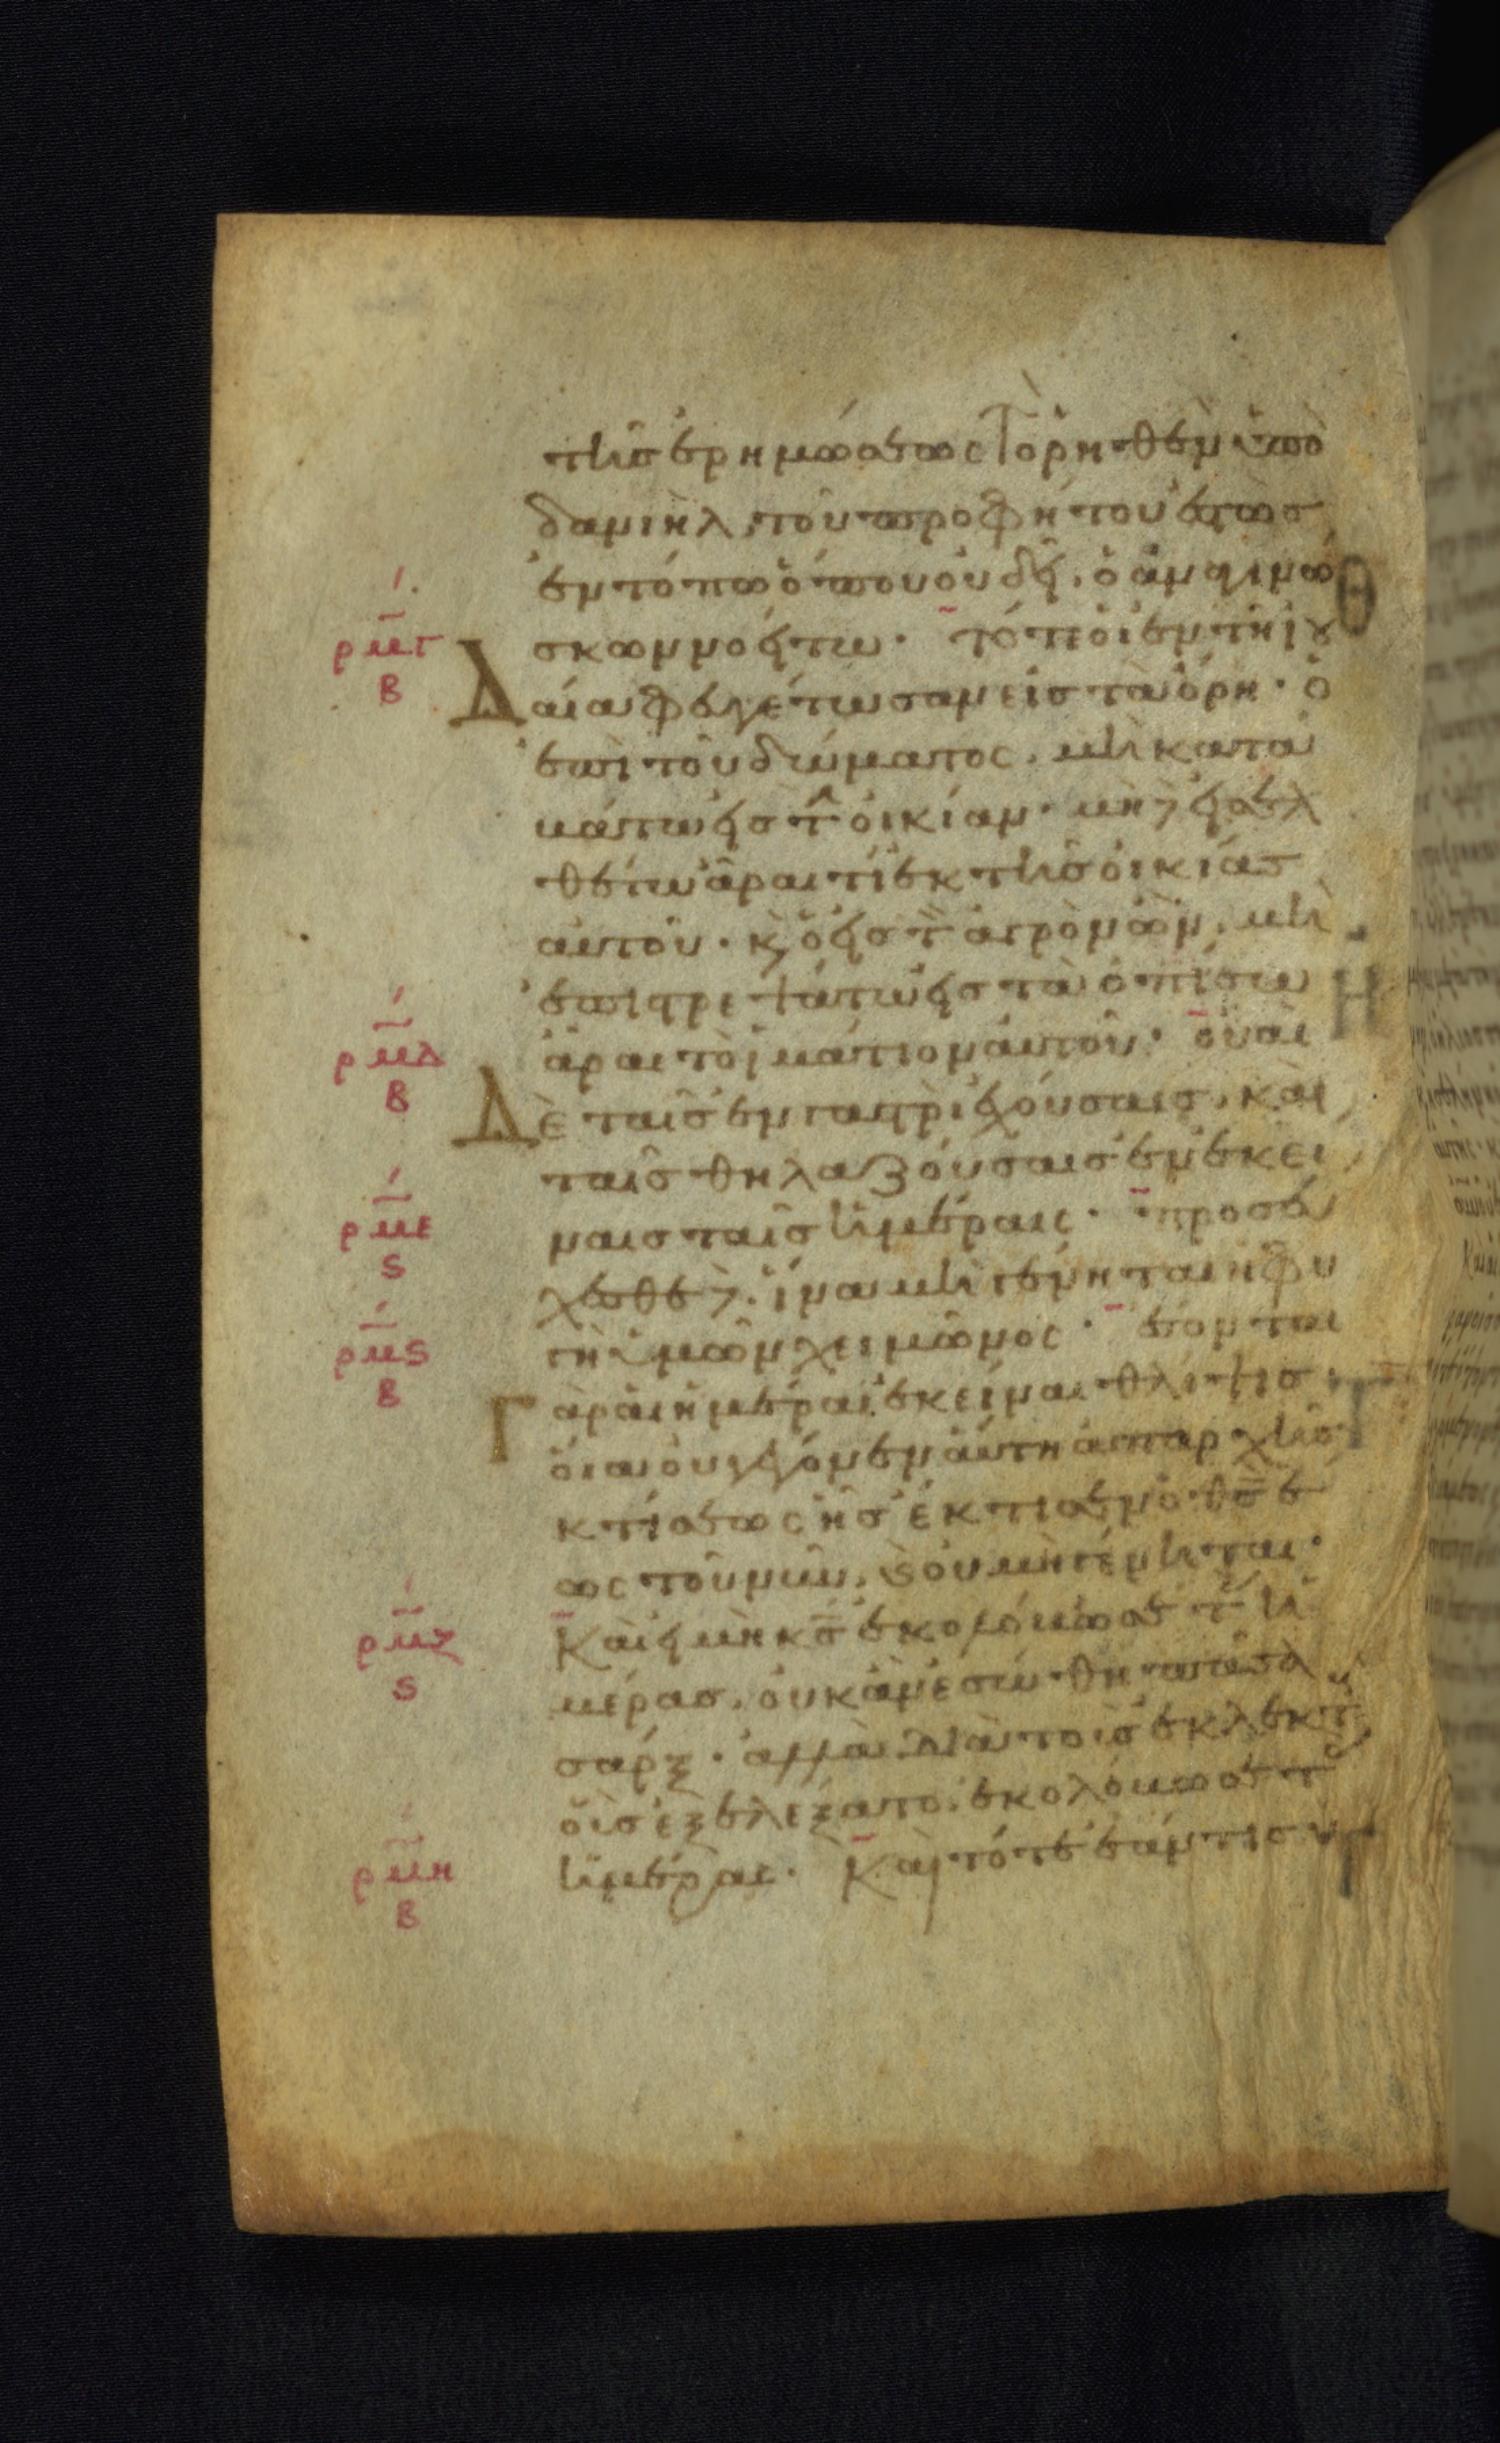 τῆς ἐρημώσεως τὸ ρηθὲν ὑπὸ
δανιὴλ τοῦ προφήτου ἑστὼς
ἐν τόπω ὅπου οὐ δεῖ. ὁ ἀναγινώ
σκων νοείτω. τότε οἱ ἐν τῆ ἰου
Δαία φευγέτωσαν εἰς τὰ ὄρη. ὁ
ἐπὶ τοῦ δώματος. μὴ κατα
βάτω εἰς τὴν οἰκίαν. μηδὲ εἰσελ
θέτω ἆραι τί ἐκ τῆς οἰκίας
αὐτοῦ. κ ὁ εἰς τὸν ἀγρὸν ὢν. μὴ
ἐπιστρεψάτω εἰς τὰ ὀπίσω
ἆραι τὸ ἱμάτιον αὐτοῦ. οὐαὶ
Δὲ ταῖς ἐν γαστρὶ ἐχούσαις. καὶ
ταῖς θηλαζούσαις ἐν ἐκεί
ναις ταῖς ἡμέραις. προσεύ
χεσθε δὲ. ἵνα μὴ γένηται ἡ φυ
γὴ ὑμῶν χειμῶνος. ἔσονται
Γὰρ αἱ ἡμέραι ἐκεῖναι θλίψις.
οἵα οὐ γέγονεν αὕτη ἀπαρχῆς
κτίσεως ἧς ἔκτισεν ὁ θς ἕ
ως τοῦ νῦν. κ οὐ μὴ γένηται.
Καὶ εἰ μὴ κς ἐκολόβωσε τὰς ἡ
μέρας. οὐκ ἂν ἐσώθη πᾶσα
σάρξ. ἀλλὰ διὰ τοὺς ἐκλεκτοὺς
οὓς ἐξελέξατο. ἐκολόβωσε τὰς
ἡμέρας. Καὶ τότε ἐάν τις ὑ
ρμγ
β
ρμδ
β
ρμε
ς
ρμς
β
ρμζ
ς
ρμη
β